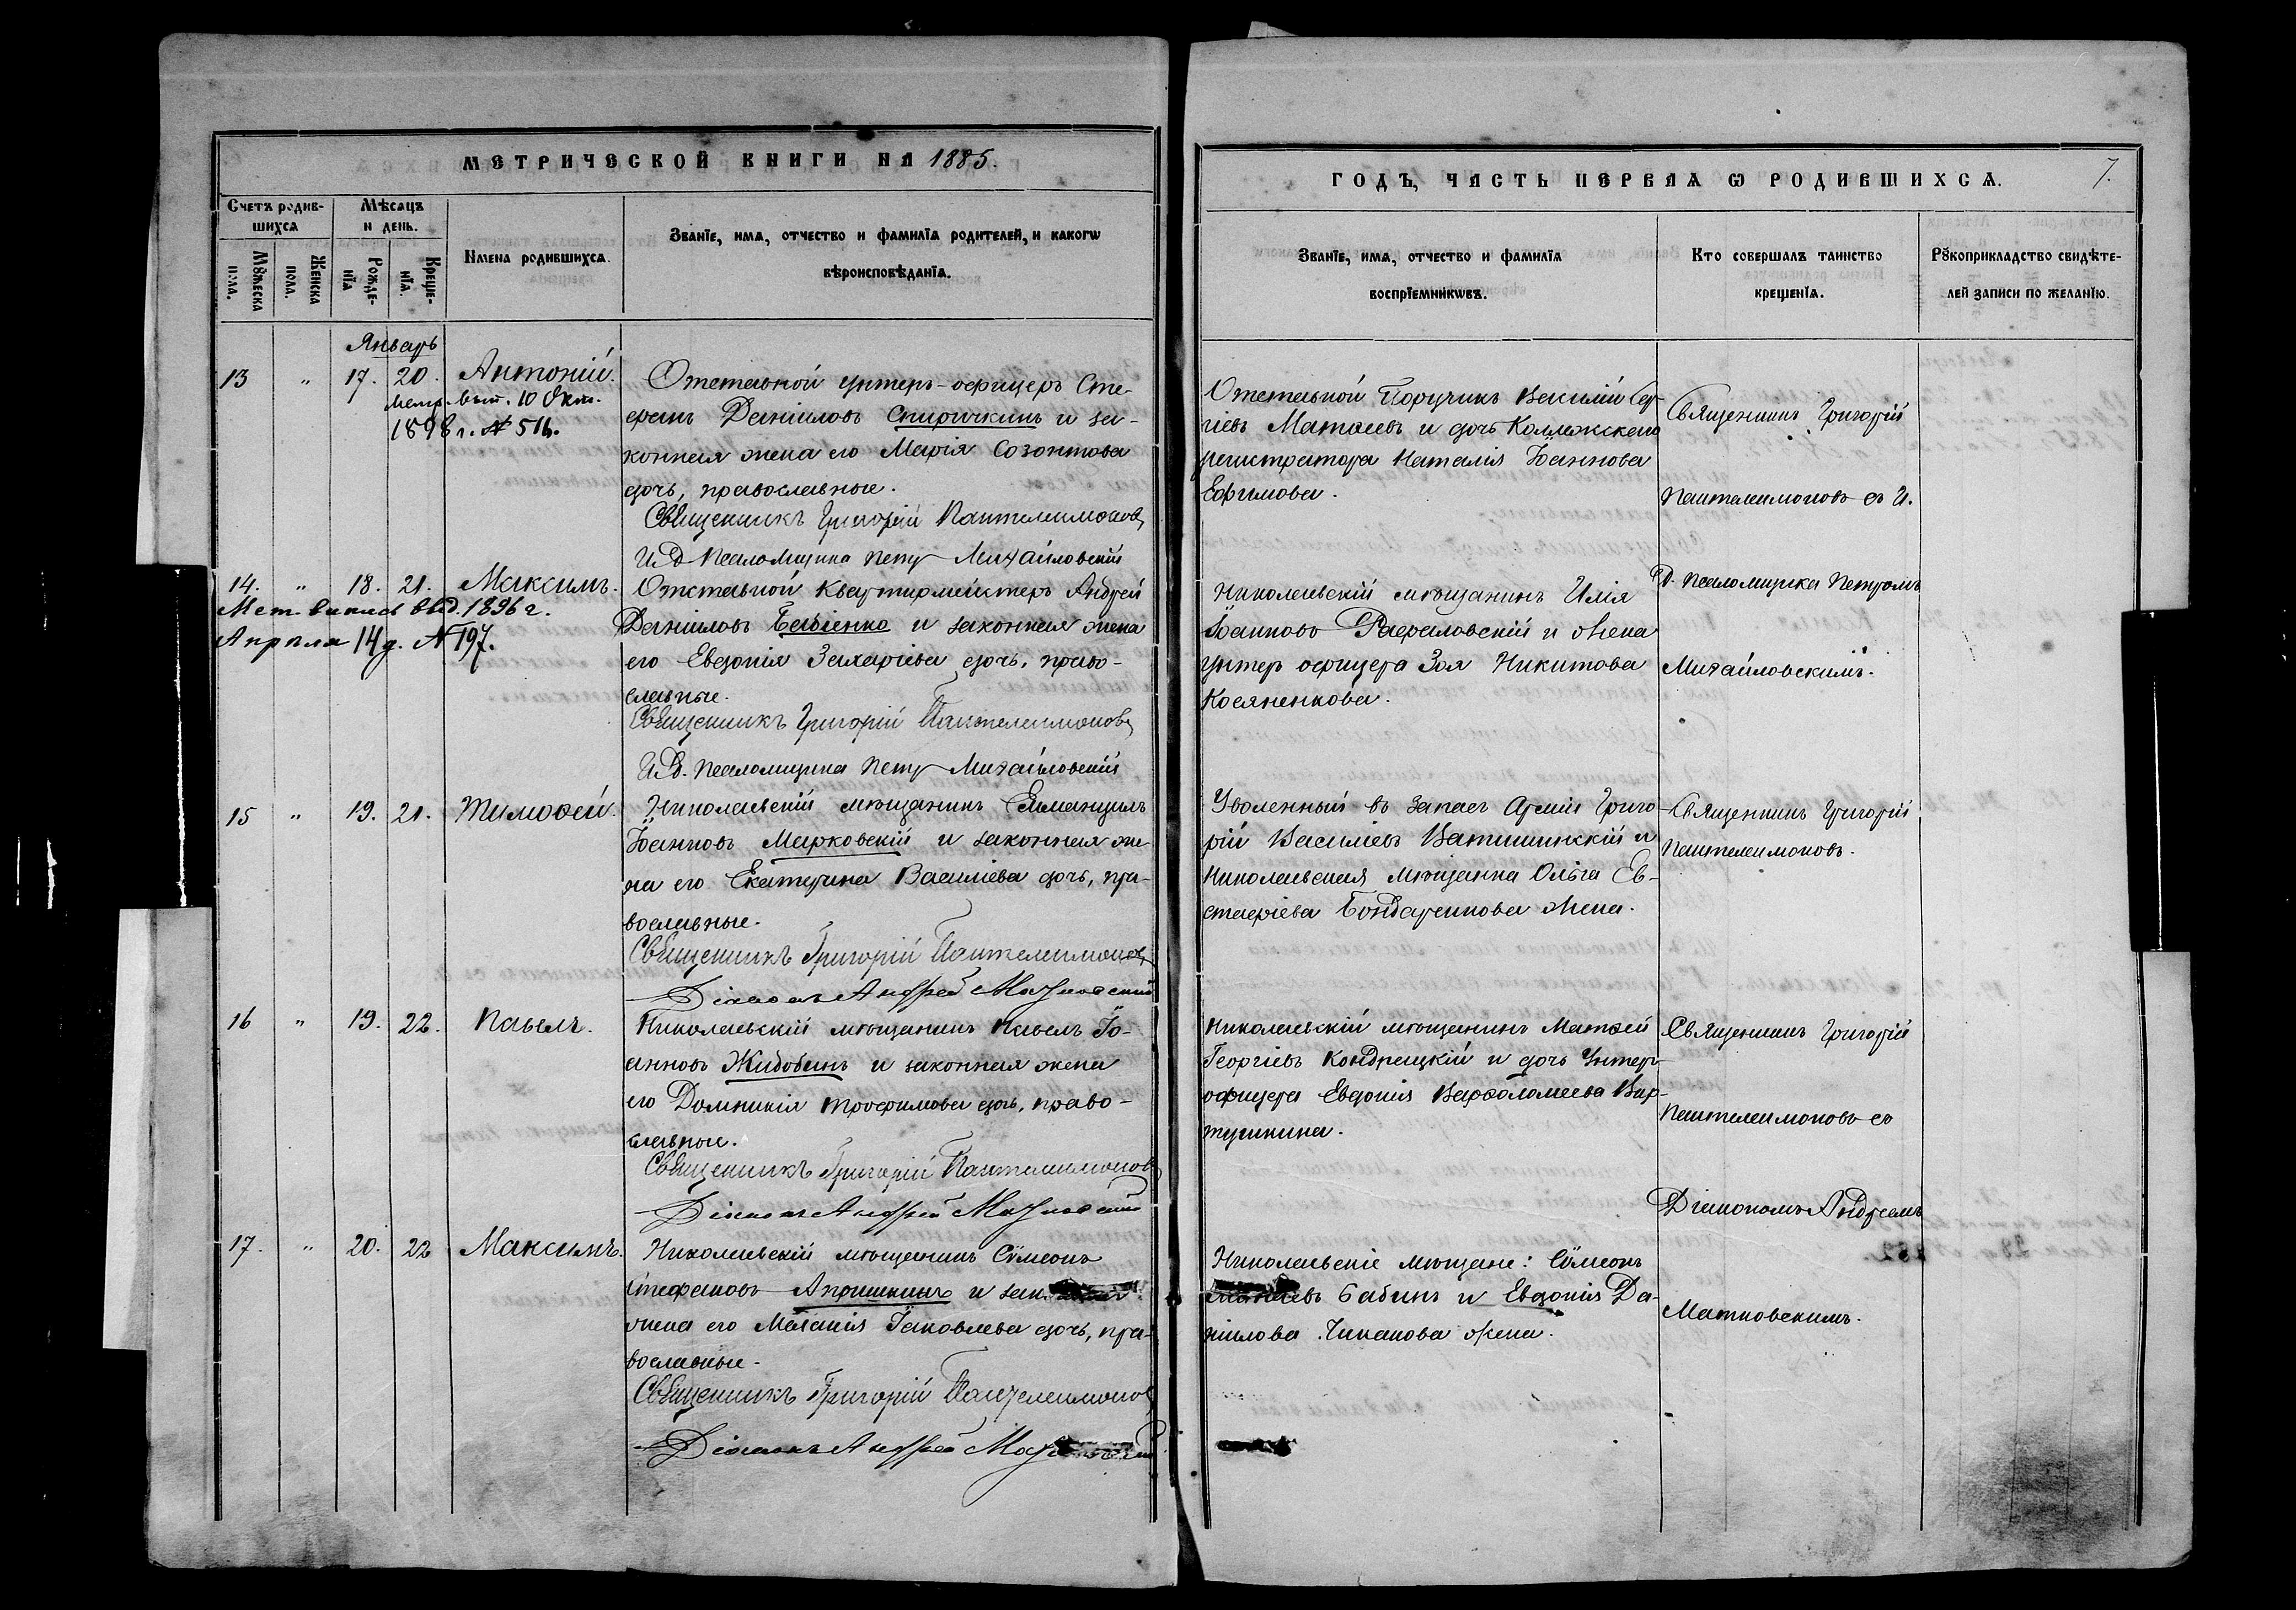 МЕТРИЧЕСКОЙ КНИГИ НА 1885.
Счетъ родив-
шихсѧ
Мѣсѧцъ
и день.
Имена родившихсѧ.
Званїе, имѧ, отчество и фамилїѧ родителей, и какогѡ
вѣроисповѣданїѧ.
Мꙋжеска
пола.
Женска
пола.
Рожде-
нїѧ
Креще-
нїѧ.
Январь
13 " 17. 20. Антоній.
Метр. вып. 10 Окт.
1898 г. № 516.
Отставной унтеръ-офицеръ Сте-
фанъ Даніиловъ Спиричкинъ и за-
конная жена его Марія Созонтова
дочь, православные.
Священникъ Григорій Пантелеимоновъ
И.д. псаломщика Петръ Михайловскій
14. " 18. 21. Максимъ.
Мет. выпись выд. 1896 г.
Апрѣля 14 д. № 197.
Отставной квартирмейстеръ Андрей
Даніиловъ Бабіенко и законная жена
его Евдокія Захаріева дочь, право-
славные.
Священникъ Григорій Пантелеимоновъ
И.д. псаломщика Петръ Михайловскій
15 " 19. 21. Тимоѳей.
Николаевскій мѣщанинъ Еммануилъ
Іоанновъ Марковскій и законная же-
на его Екатерина Василіева дочь, пра-
вославные.
Священникъ Григорій Пантелеимоновъ
Діаконъ Андрей Матковскій
16 " 19. 22. Павелъ.
Николаевскій мѣщанинъ Павелъ Іо-
анновъ Жидобинъ и законная жена
его Домникія Трофимова дочь, право-
славные.
Священникъ Григорій Пантелеимоновъ
Діаконъ Андрей Матковскій
17. " 20. 22 Максимъ.
Николаевскій мѣщанинъ Сѵмеонъ
Стефановъ Апришкинъ и зак
жена его Меланія Іаковлева дочь, пра-
вославные.
Священникъ Григорій Пантелеимоновъ
Діаконъ Андрей
ГОДЪ, ЧАСТЬ ПЕРВАѦ Ѡ РОДИВШИХСѦ.
7.
Званїе, имѧ, отчество и фамилїѧ
воспрїемникѡвъ.
Кто совершалъ таинство
крещенїѧ.
Рꙋкоприкладство свидѣте-
лей записи по желанїю.
Отставной Поручикъ Василій Сер-
гіевъ Матвеевъ и дочь Коллежскаго
регистратора Наталія Іоаннова
Ефимова.
Священникъ Григорій
Пантелеимоновъ съ И.
д. псаломщика Петромъ
Михайловскимъ.
Николаевскій мѣщанинъ Илія
Іоанновъ Рафаловскій и жена
унтеръ офицера Зоя Никитова
Косяненкова.
Уволенный въ запасъ Арміи Григо-
рій Василіевъ Ватишинскій и
Николаевская мѣщанка Ольга Ев-
стафіева Бондаренкова жена.
Священникъ Григорій
Пантелеимоновъ.
Николаевскій мѣщанинъ Матѳей
Георгіевъ Кондрацкій и дочь Унтеръ
офицера Евдокія Варѳоломеева Вар-
тушкина.
Священникъ Григорій
Пантелеимоновъ съ
Діакономъ Андреемъ
Матковскимъ.
Николаевскіе мѣщане: Сѵмеонъ
Бабинъ и Евдокія Да-
ніилова Чиканова жена.